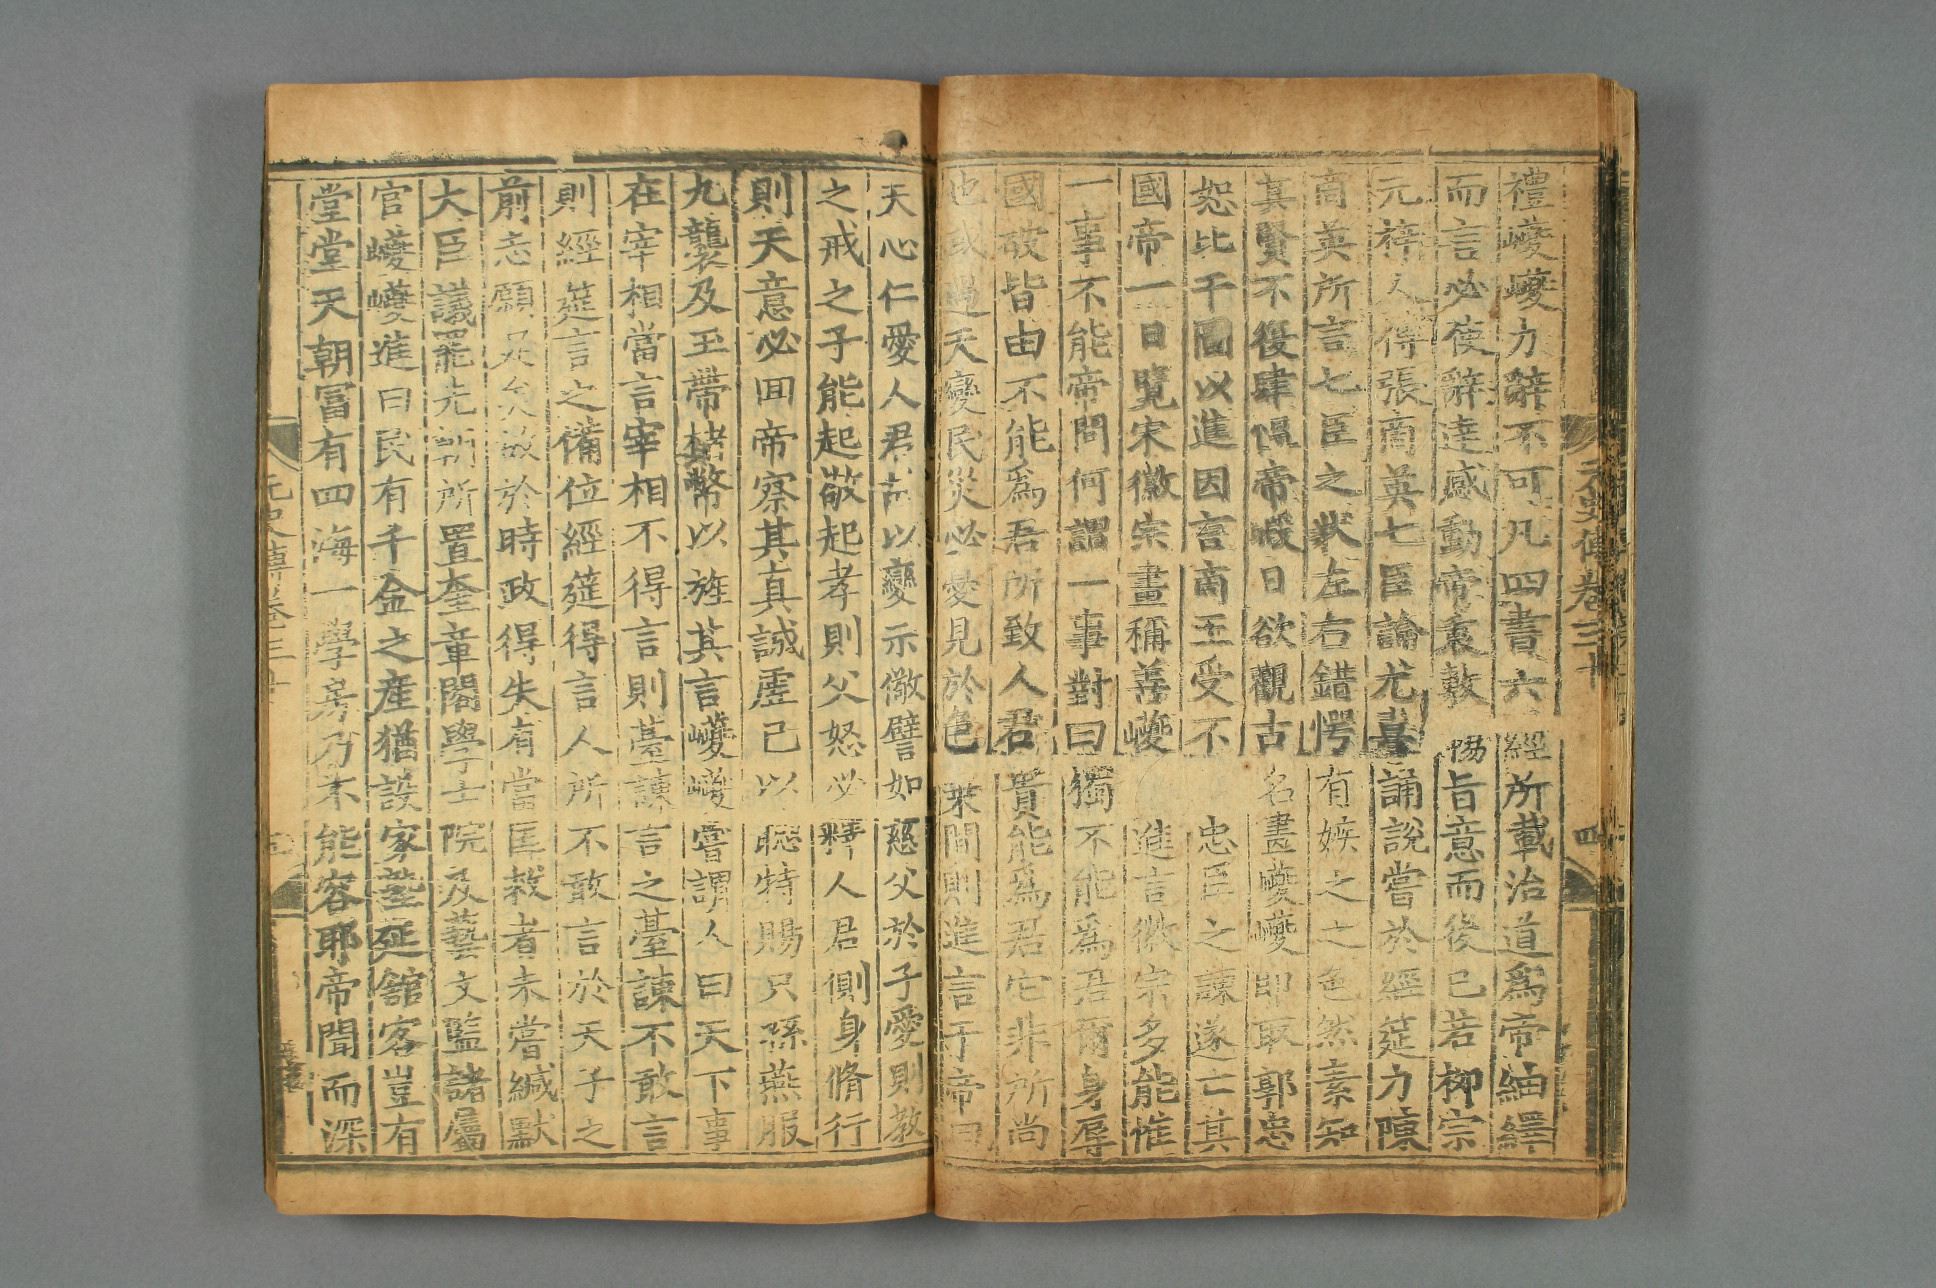 禮巙巙力辭不可凡四書六經所載治道爲帝紬繹
而言必使辭達感動帝衷敷暢旨意而後已若柳宗
元梓人傳張商英七臣論尤喜誦說嘗於經筵力陳
商英所言七臣之狀左右錯愕有嫉之之色然素知
其賢不復肆慍帝暇日欲觀古名畫巙巙即取郭忠
恕比干圖以進因言商王受不忠臣之諫遂亡其
國帝一日覽宋徽宗畫稱善巙進言徽宗多能惟
一事不能帝問何謂一事對曰獨不能爲君爾身辱
國破皆由不能爲君所致人君貴能爲君它非所尚
也或遇天變民災必憂見於色乘間則進言于帝曰
天心仁愛人君故以變示儆譬如慈父於子愛則教
之戒之子能起敬起孝則父怒必釋人君側身脩行
則天意必回帝察其真誠虛己以聽特賜只孫燕服
九襲及玉帶楮幣以旌其言巙巙嘗謂人曰天下事
在宰相當言宰相不得言則臺諫言之臺諫不敢言
則經筵言之備位經筵得言人所不敢言於天子之
前志願足矣故於時政得失有當匡救者未嘗緘默
大臣議罷先朝所置奎章閣學士院及藝文監諸屬
官巙巙進曰民有千金之產猶設家塾延舘客豈有
堂堂天朝富有四海一學房乃不能容耶帝聞而深
元史傳卷三十